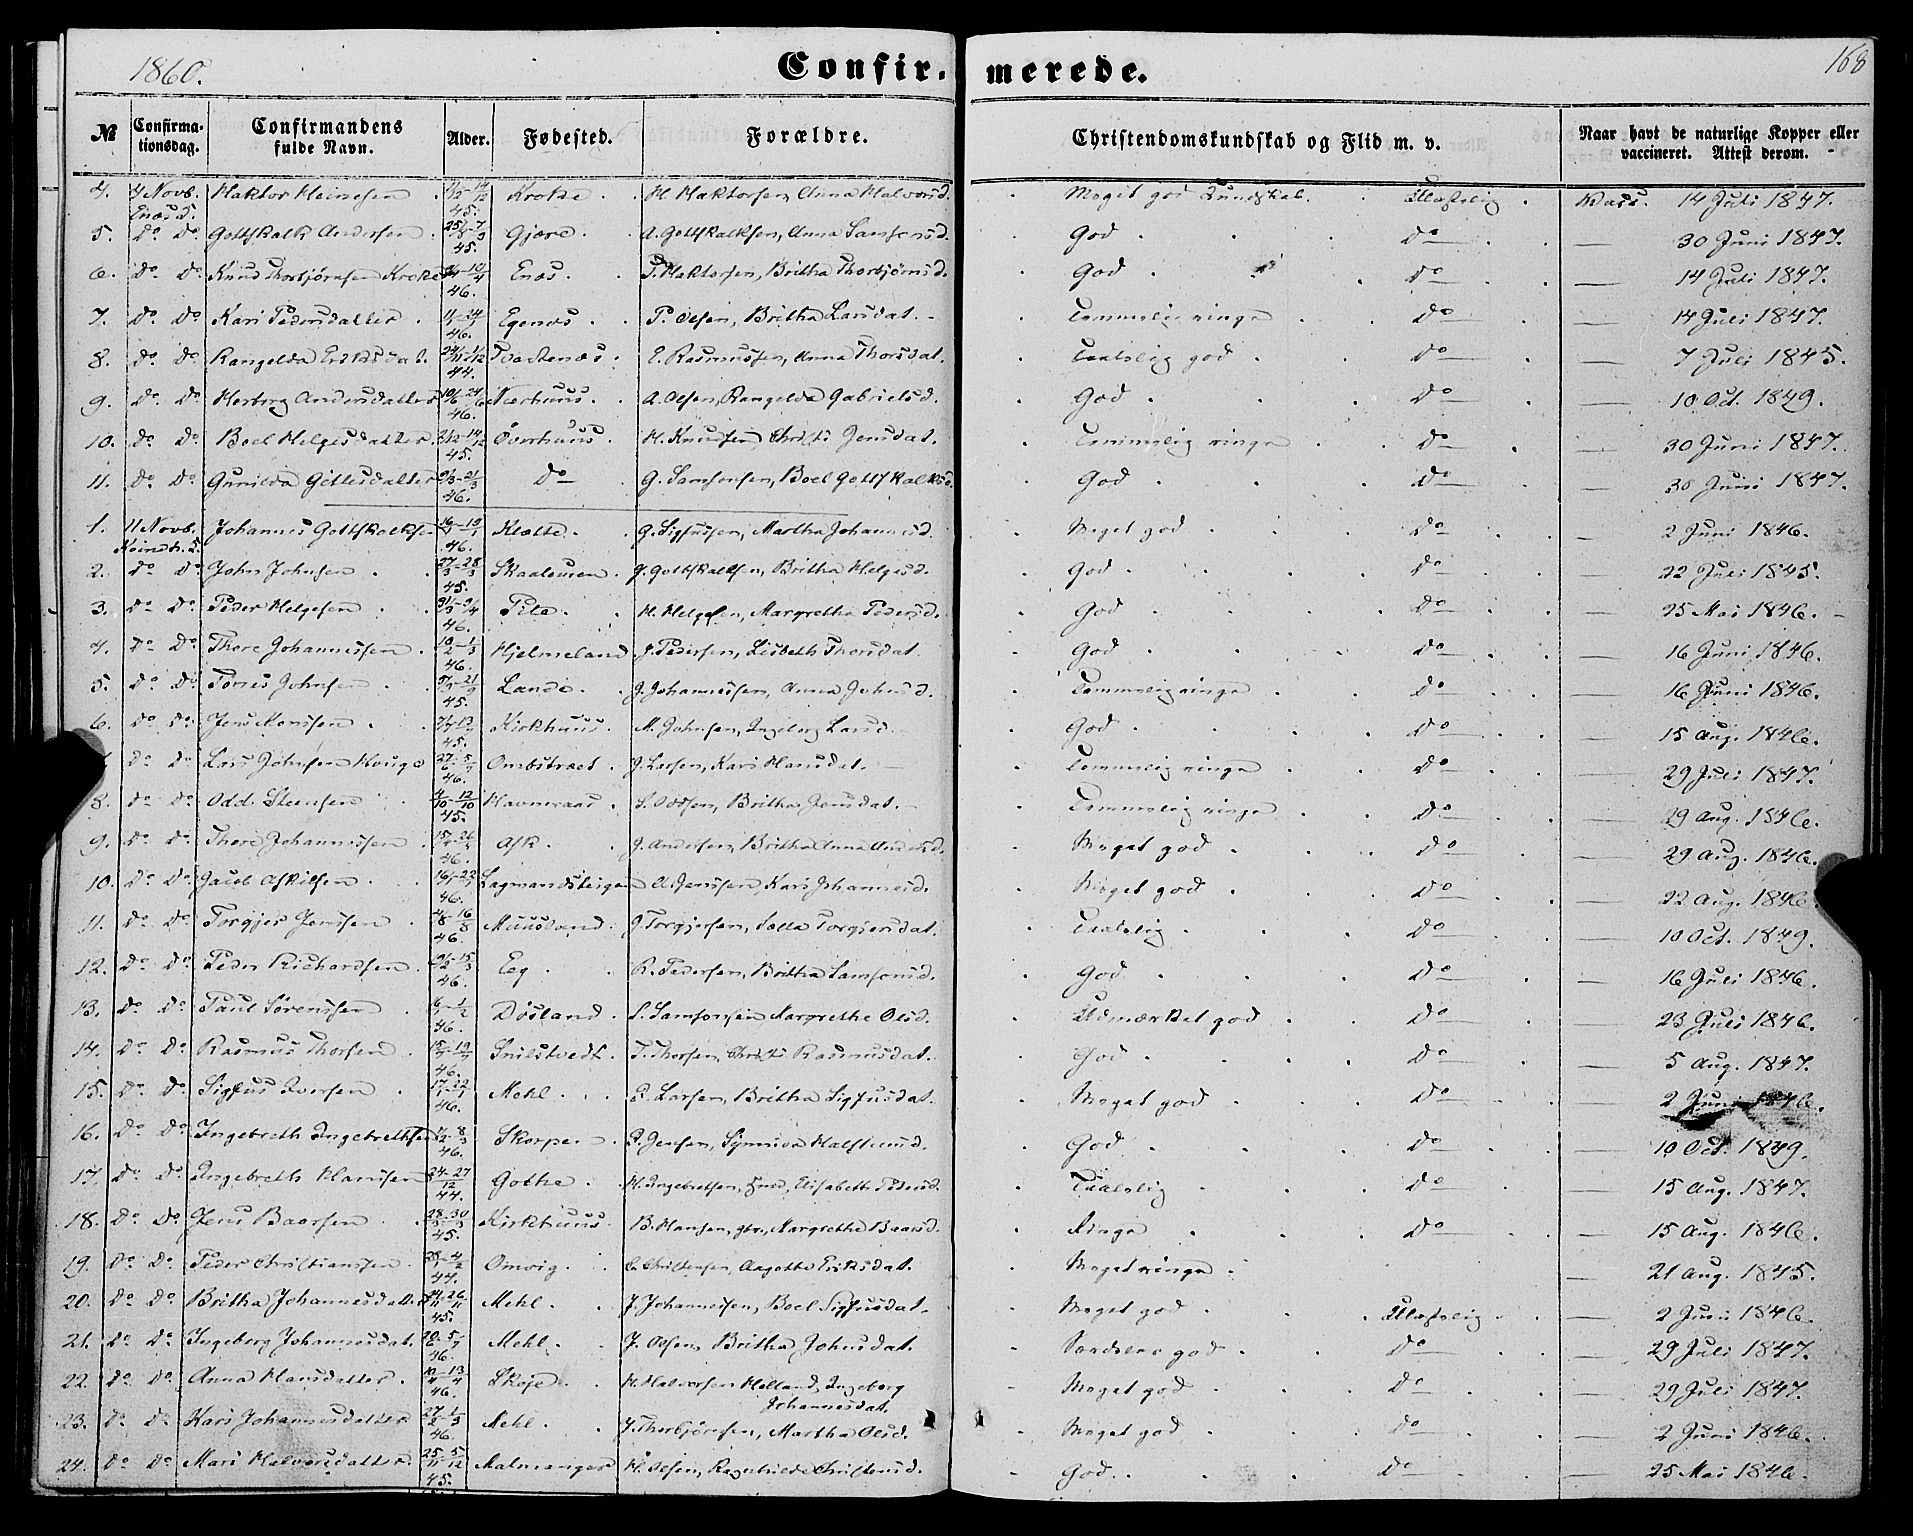 1860.
Confir- merede.
168
№ Confirma-tionsdag. Confirmandens fulde Navn. Alder. Fødested. Forældre. Christendomskundskab og Flid m. v. Naar havt de naturlige Kopper eller vaccineret. Attest derom.
4. 4 Novb. Enæs K. Haktor Heinesen 45. Kroke. H. Haktorsen, Anna Halvorsd. Meget god Kundskab. Ulastelig. Vacc. 14 Juli 1847.
5. Do Do Gottskalk Andersen 45. Gjære. A. Gottskalksen, Anna Samsonsd. God Do — 30 Juni 1847.
6. Do Do Knud Thorbjørnsen Kroke 46. Enæs. T. Haktorsen, Britha Thorbjørnsd. God Do — 14 Juli 1847.
7. Do Do Kari Pedersdatter 46. Egenæs. P. Olsen, Britha Larsdat. Temmelig ringe Do — 14 Juli 1847.
8. Do Do Rangelda Eriksdat. 44. Tvedtenæs. E. Rasmussen, Anna Thorsdat. Taalelig god Do — 7 Juli 1845.
9. Do Do Herborg Andersdatter 46. Nærhuus. A. Olsen, Rangelda Gabrielsd. God Do — 10 Oct. 1849.
10. Do Do Boel Helgesdatter 45. Øverhuus. H. Knudsen, Christi Jensdat. Temmelig ringe Do — 30 Juni 1847.
11. Do Do Gunilda Gittlesdatter 46. Do G. Samsonsen, Boel Gottskalksd. God Do — 30 Juni 1847.
1. 11 Novb. Kvindh. K. Johannes Gottskalksen 46. Klætte. G. Sigfussen, Martha Johannesd. Meget god Do — 2 Juni 1846.
2. Do Do John Johnsen 27/3-28/3 45. Skaalemen. J. Gottskalksen, Britha Helgesd. God Do — 22 Juli 1845.
3. Do Do Peder Helgesen 46. Tite. H. Helgesen, Margretha Pedersd. God Do — 25 Mai 1846.
4. Do Do Thore Johannessen 10/2-1/3 46. Hjelmeland J. Pedersen, Lisbeth Thorsdat. God Do — 16 Juni 1846.
5. Do Do Tørres Johnsen 45. Lande. J. Johannessen, Anna Johnsd. Temmelig ringe Do — 16 Juni 1846.
6. Do Do Jens Monssen 45. Kirkhuus. M. Johnsen, Ingeborg Larsd. God Do — 15 Aug. 1846.
Do Do Lars Johnsen Houge 46. Ombstræet. J. Larsen, Kari Hansdat. Temmelig ringe Do — 29 Juli 1847.
8. Do Do Odd Steensen 4/10-12/10 45. Havneraas. S. Oddsen, Britha Jensdat. Temmelig ringe Do — 29 Aug. 1846.
9. Do Do Thore Johannessen 46. Ask. J. Andersen, Britha Anna Andersd. Meget god Do — 29 Aug. 1846.
10. Do Do Jacob Askildsen 46. Lagmandsteigen A. Jenssen, Kari Johannesd. Meget god Do — 22 Aug. 1846.
11. Do Do Torgjer Jenssen 46. Muusland. J. Torgjersen, Sætta Torgjersdat. Taalelig Do — 10 Oct. 1849.
12. Do Do Peder Richardsen 46. Eeg. R. Pedersen, Britha Samsonsd. God Do — 16 Juli 1846.
13. Do Do Paul Sørenssen 46. Døsland. S. Samsonsen, Margrethe Olsd. Udmærket god Do — 23 Juli 1846.
14. Do Do Rasmus Thorsen 46. Snilstvedt. T. Thorsen, Christi Rasmusdat. God Do — 5 Aug. 1847.
15. Do Do Sigfus Iversen 46. Mehl. I. Larsen, Britha Sigfusdat. Meget god Do — 2 Juni 1846.
16. Do Do Ingebreth Ingebrethsen 46. Skorpen I. Jensen, Synneva Halstensd. God Do — 10 Oct. 1849.
17. Do Do Ingebreth Hanssen 24-27/12 44. Gothe. H. Ingebretsen, Elisabeth Pedersd. Taalelig Do — 15 Aug. 1847.
18. Do Do Jens Baarsen 28/3-30/3 45. Kirkhuus. B. Hansen, Margrethe Baarsd. Ringe Do — 15 Aug. 1846.
19. Do Do Peder Christianssen 44. Omvig. C. Christensen, Aagotte Eriksdat. Meget ringe — 21 Aug. 1845.
20. Do Do Britha Johannesdatter 24/11-26/11 45. Mehl. J. Johannessen, Boel Sigfusdat. Meget god Ulastelig — 2 Juni 1846.
21. Do Do Ingeborg Johannesdat. 46. Mehl. J. Olsen, Britha Johnsdat. Særdeles god Do — 29 Juli 1847.
22. Do Do Anna Hansdatter 10/4-13/4 46. Skeje. H. Halvorsen Helland, Ingeborg Johannesdat. Meget god Do — 29 Juli 1847.
23. Do Do Kari Johannesdatter 27/2-1/3 46. Mehl. J. Thorbjørnsen, Martha Olsd. Meget god Do — 2 Juni 1846.
24. Do Do Mari Halvorsdatter 25/11-5/12 45. Malmanger H. Olsen, Ragnhilde Christensd. God Do — 25 Mai 1846.